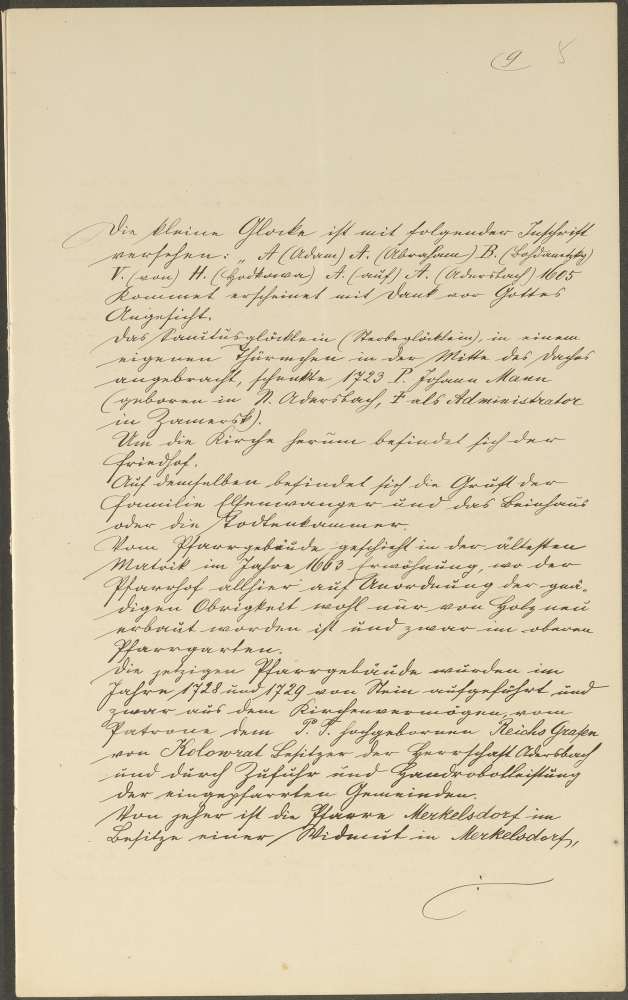 9 8
Die kleine Glocke ist mit folgender Inschrift
versehen: „A (Adam) A. (Abraham) B. (Bohdanetzky)
V. (von) H. (Hodkowa) A. (auf) A. (Adersbach) 1605
Kommet erscheinet mit Dank vor Gottes
Angesicht.
Das Sanctusglöcklein (Sterbeglöcklein), in einem
eigenen Thürmchen in der Mitte des Daches
angebracht, schenkte 1723 P. Johann Mann
(geboren in N. Adersbach, † als Administrator
in Zamersk).
Um die Kirche herum befindet sich der
Friedhof.
Auf demselben befindet sich die Gruft der
Familie Elsenwanger und das Beinhaus
oder die Todtenkammer.
Vom Pfarrgebäude geschieht in der ältesten
Matrik im Jahre 1663 Erwähnung, wo der
Pfarrhof allhier auf Anordnung der gnä-
digen Obrigkeit wohl nur von Holz neu
erbaut worden ist und zwar im oberen
Pfarrgarten.
Die jetzigen Pfarrgebäude wurden im
Jahre 1728 und 1729 von Stein aufgeführt und
zwar aus dem Kirchenvermögen, vom
Patrone dem P. T. hochgebornen Reichs Grafen
von Kolowrat Besitzer der Herrschaft Adersbach
und durch Zufuhr und Handrobotleistung
der eingepfarrten Gemeinden.
Von jeher ist die Pfarre Merkelsdorf im
Besitze einer Widmut in Merkelsdorf,